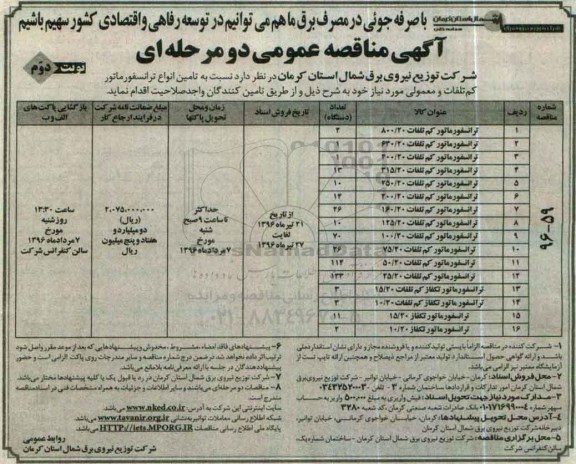 با صرفه جوئی در مصرف برق ما هم می توانیم در توسعه رفاهی و اقتصادی کشور سهیم باشیم
آگهی مناقصه عمومی دو مرحله ای
نوبت دوم
شرکت توزیع نیروی برق شمال استان کرمان در نظر دارد نسبت به تامین انواع ترانسفورماتور
کم تلفات و معمولی مورد نیاز خود به شرح ذیل و از طریق تامین کنندگان واجد صلاحیت اقدام نماید.
شماره مناقصه
ردیف
عنوان کالا
تعداد (دستگاه)
تاریخ فروش اسناد
زمان و محل تحویل پاکتها
مبلغ ضمانت نامه شرکت در فرایند ارجاع کار
بازگشایی پاکت های الف و ب
۹۶-۵۹
۱ ترانسفورماتور کم تلفات ۸۰۰/۲۰ ۲
۲ ترانسفورماتور کم تلفات ۶۳۰/۲۰
۳ ترانسفورماتور کم تلفات
۴ ترانسفورماتور کم تلفات ۳۱۵/۲۰ ۱۳
۵ ترانسفورماتور کم تلفات ۲۵۰/۲۰ ۱۰
۶ ترانسفورماتور کم تلفات ۲۰۰/۲۰ ۱۴
۷ ترانسفورماتور کم تلفات ۱۶۰/۲۰ ۲۶
۸ ترانسفورماتور کم تلفات ۱۲۵/۲۰ ۱۰
۹ ترانسفورماتور کم تلفات ۱۰۰/۲۰ ۷۰
۱۰ ترانسفورماتور کم تلفات ۷۵/۲۰
۱۱ ترانسفورماتور کم تلفات ۵۰/۲۰ ۱۱۴
۱۲ ترانسفورماتور کم تلفات ۲۵/۲۰ ۱۳۳
۱۳ ترانسفورماتور تکفاز کم تلفات ۱۵/۲۰ ۳
۱۴ ترانسفورماتور تکفاز کم تلفات ۱۰/۲۰ ۳
۱۵ ترانسفورماتور تکفاز ۱۵/۲۰ ۱۱
۱۶ ترانسفورماتور تکفاز ۱۰/۲۰ ۲
از تاریخ
۲۱ تیر ماه ۱۳۹۶
لغایت
۲۷ تیر ماه ۱۳۹۶
حداکثر
تا ساعت ۹ صبح
شنبه
مورخ
۷ مرداد ماه ۱۳۹۶
۲،۰۷۵،۰۰۰،۰۰۰
(ریال)
دو میلیارد و
هفتاد و پنج میلیون
ریال
ساعت ۱۳:۳۰
روز شنبه
مورخ
۷ مرداد ماه ۱۳۹۶
سالن کنفرانس شرکت
۱- شرکت کننده در مناقصه الزاما بایستی تولید کننده و یا فروشنده مجاز و دارای نشان استاندارد ملی
باشند و ارائه گواهی حصول استاندارد تولید معتبر از مراجع ذیصلاح و همچنین ارائه تایپ تست از
آزمایشگاه معتبر نیز الزامی می باشد.
۲- محل فروش اسناد: کرمان - خیابان خواجوی کرمانی - خیابان توانیر - شرکت توزیع نیروی برق
شمال استان کرمان امور تدارکات و قراردادها ساختمان شماره ۳ - تلفن
۳- مدارک مورد نیاز جهت تحویل اسناد: فیش واریزی به مبلغ ۵۰۰،۰۰۰ ریال واریز به حساب
سپهر شماره بانک صادرات شعبه صنعتی کرمان، کد شعبه ۳۲۸۰
۴- آدرس محل تحویل پیشنهادها: کرمان - خیابان خواجوی کرمانی، خیابان توانیر،
دبیرخانه شرکت توزیع نیروی برق شمال استان کرمان
۵- محل برگزاری مناقصه: شرکت توزیع نیروی برق شمال استان کرمان - ساختمان شماره یک،
سالن کنفرانس شرکت
۶- پیشنهادهای فاقد امضاء، مشروط، مخدوش و پیشنهادهایی که بعد از موعد مقرر واصل شود
ترتیب اثر داده نخواهد شد
۷- شرکت توزیع نیروی برق شمال استان کرمان در رد یا قبول یک یا کلیه پیشنهادها مختار می باشد.
سایت اینترنتی این شرکت به آدرس: www.nked.co.ir می باشد.
شبکه اطلاع رسانی معاملات توانیر به نشانی www.tavanir.org.ir می باشد.
پایگاه ملی اطلاع رسانی مناقصات HTTP://iets.MPORG.IR می باشد.
روابط عمومی
شرکت توزیع نیروی برق شمال استان کرمان